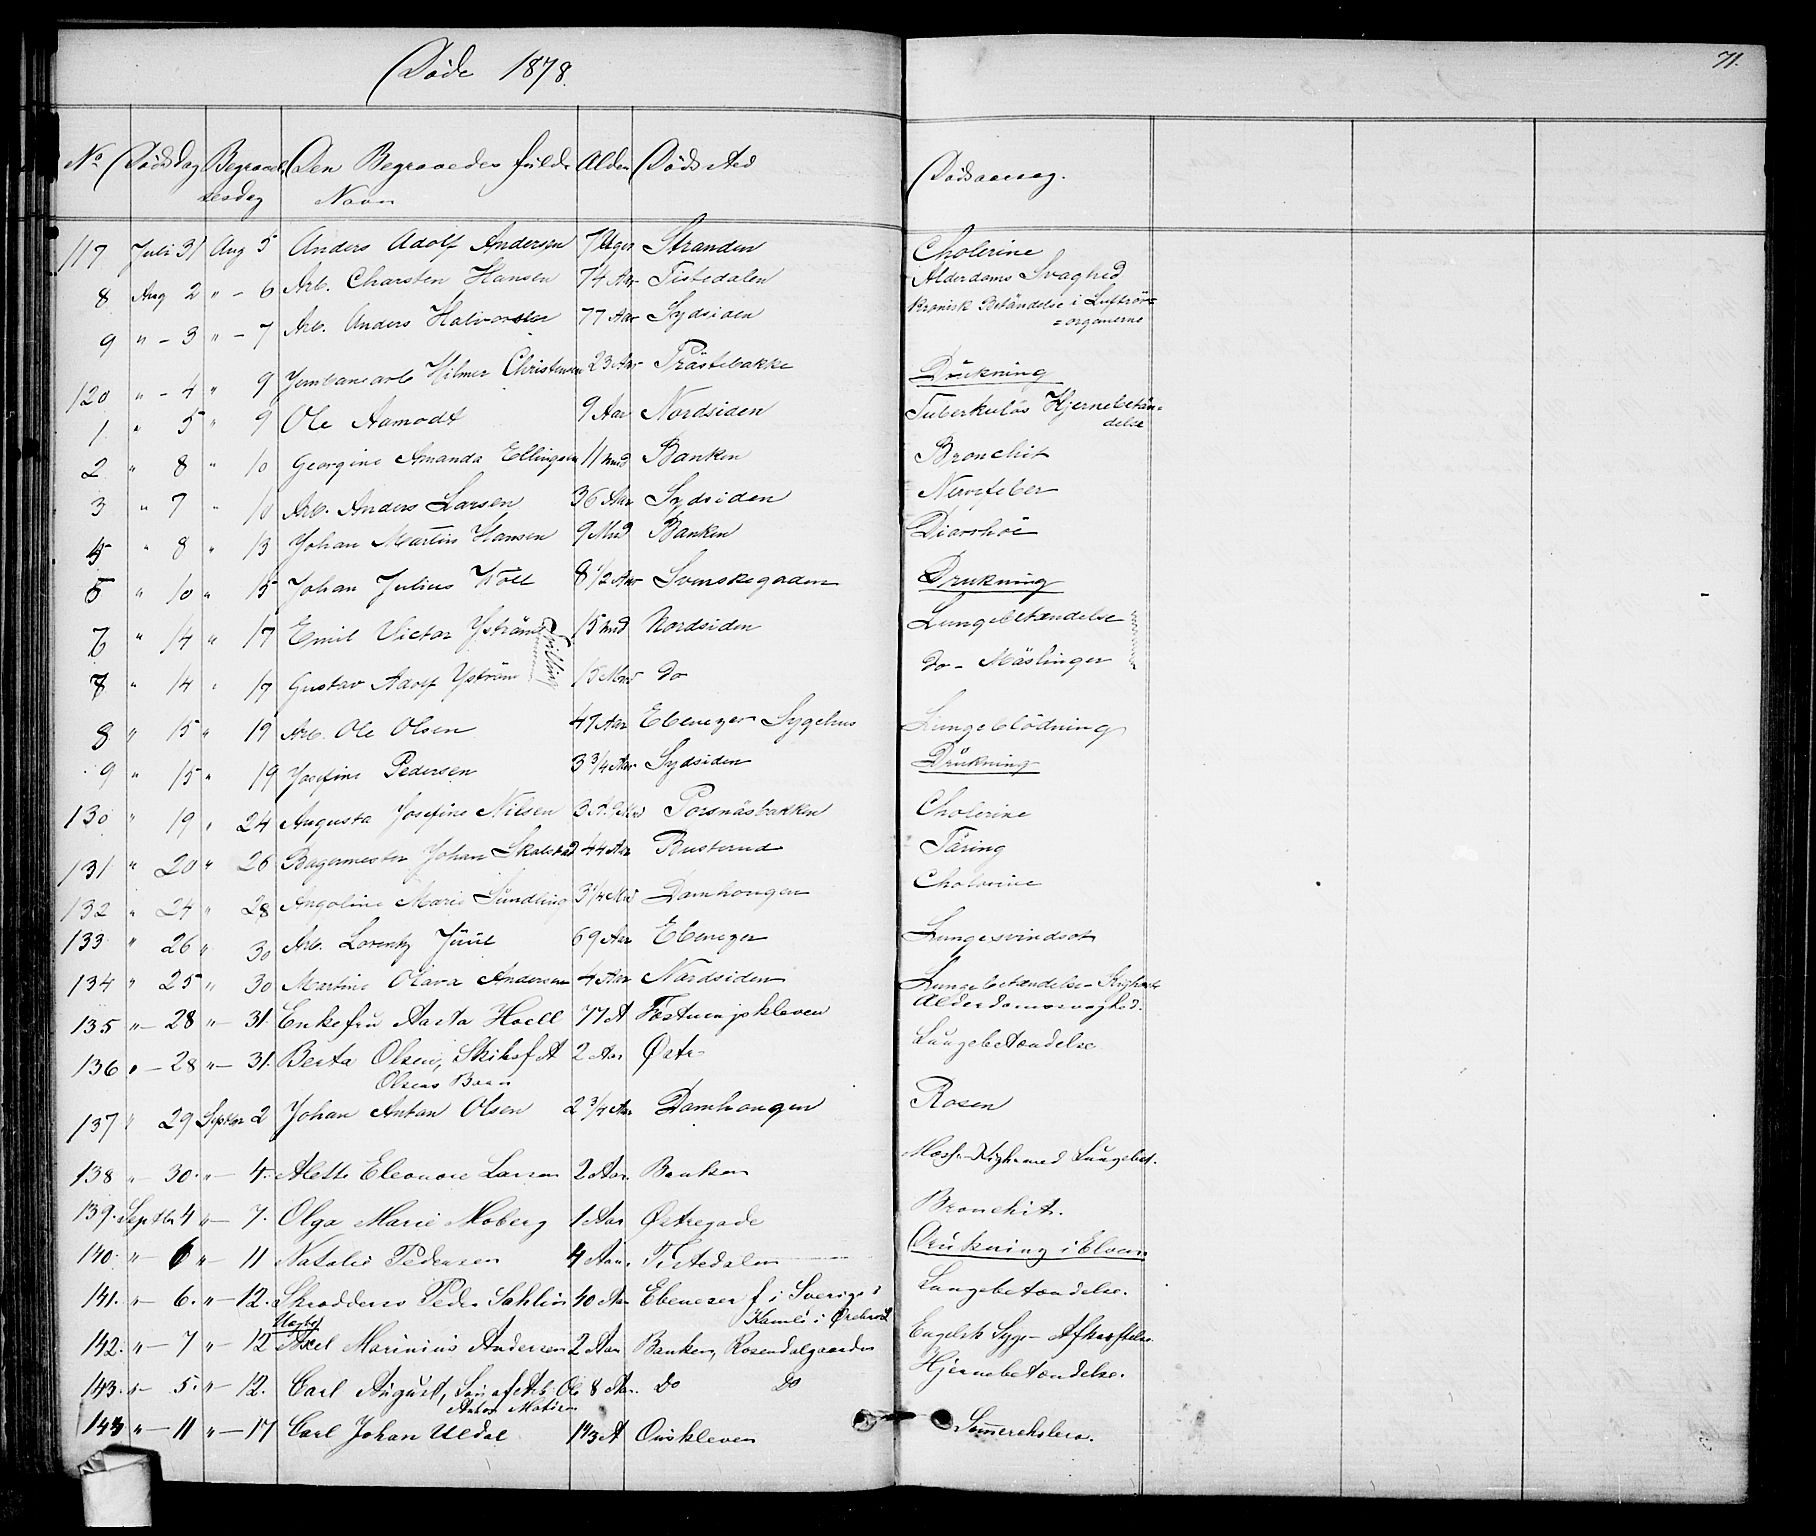 Døde 1878.
71.
No Dødsdag Begravel- Den Begravedes fulde Alder Dødssted Dødsaarsag.
sesdag Navn
117 Juli 31 Aug 5 Anders Adolf Andersen 7 Uger Stranden Cholerine
8 Aug 2 " - 6 Arb. Charsten Hansen 74 Aar Tistedalen Alderdoms Svaghed
9 " - 3 " - 7 Arb. Anders Halvorsen 77 Aar Sydsiden Kronisk Betændelse i Luftrør=
=organerne
120 " - 4 " 9 Jernbanearb Hilmer Christensen 23 Aar Præstebakke Drukning
1 " 5 " 9 Ole Aamodt 9 Aar Nordsiden Tuberkuløs Hjernebetän=
delse
2 " 8 " 10 Georgine Amanda Ellingsen 11 Mnd Banken Bronchit
3 " 7 " 10 Arb. Anders Larsen 36 Aar Sydsiden Nervefeber
4 " 8 " 13 Johan Martin Hansen 9 Mnd Banken Diarrhöe
5 " 10 " 15 Johan Julius Woll 8 1/2 Aar Svenskegaden Drukning
6 " 14 " 17 Emil Victor Yström 15 Mnd Nordsiden Lungebetændelse
Tvilling
7 " 14 " 17 Gustav Adolf Yström 15 Mnd do do - Mäslinger
8 " 15 " 19 Arb. Ole Olsen 47 Aar Ebenezer Sygehus Lungeblödning
9 " 15 " 19 Josefine Pedersen 3 3/4 Aar Sydsiden Drukning
130 " 19 " 24 Augusta Josefine Nilsen 3 A. 9 Md Porsnäsbakken Cholerine
131 " 20 " 26 Bagermester Johan Skolstad 44 Aar Busterud Täring
132 " 24 " 28 Angoline Marie Sundling 3 1/4 Md Damhougen Cholerine
133 " 26 " 30 Arb. Lorentz Juul 69 Aar Ebenezer Lungesvindsot
134 " 25 " 30 Martine Olava Andersen 4 Aar Nordsiden Lungebetændelse - Kighoste
135 " - 28 " - 31. Enkefru Aasta Hoell 77 A Fæstningskleven Alderdomssvaghed.
136 " - 28 " - 31. Berta Olsen, Skibsf A 2 Aar Østre Lungebetændelse
Olsens Barn
137 " 29 Septbr 2 Johan Anton Olsen 2 3/4 Aar Damhougen Rosen
138 " 30. " - 4. Alette Eleonore Larsen 2 Aar. Banken Mæsl. - Kigh. med Lungebet.
139. Septbr 4 " - 7. Olga Marie Moberg 1 Aar Østregade Bronchit.
140. " - 6 " - 11 Natalie Pedersen 4 Aar. Tistedalen Drukning i Elven
141. " - 6. " - 12. Skræddersv Peder Sahlin 40 Aar Ebenezer f i Sverige i Lungebetændelse.
Kamlö i Örebro L
142. " - 7 " - 12 Axel Marinius Andersen 2 Aar Banken, Rosendalgaarden Engelsk Syge - Afkræftelse
143. " - 5. " - 12. Carl August, Søn af Arb. Ole 8 Aar. Do Do Hjernebetændelse.
Anton
144 " - 11 " - 17 Carl Johan Uldal 1 1/3 A Ouskleven Sommerkolera.